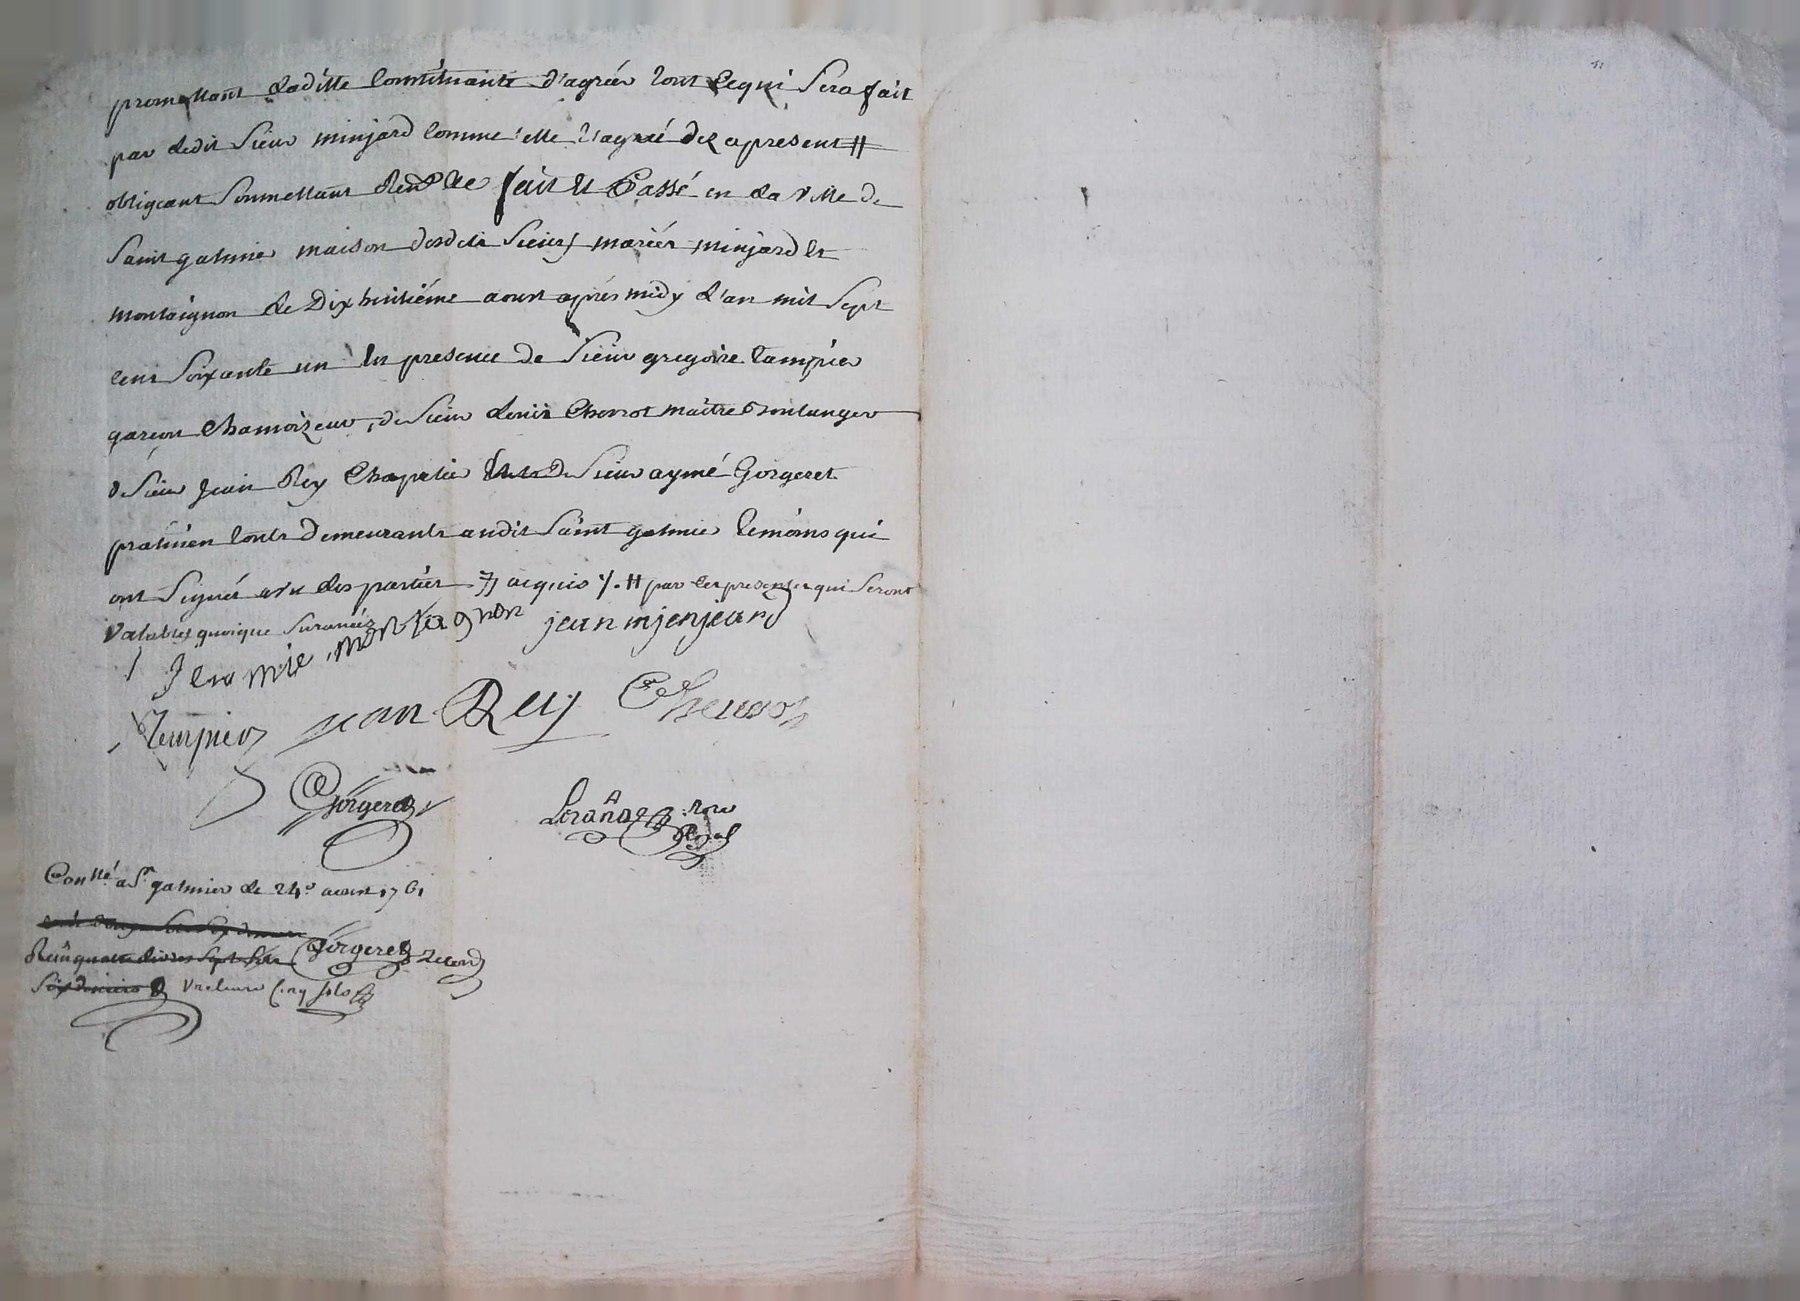 promettant laditte Constituante d'agréer tout Cequi Sera fait
par ledit Sieur minjard Comme elle l'agréé dez apresent #
obligeant Soumettant Rend. &e fait et Passé en la ville de
Saint galmier maison desdits Sieurs mariés minjard et
montaignon le Dix huitiéme aoust aprés midy l'an mil Sept
Cent Soixante un En presence de Sieur gregoire tampier
garçon Chamoizeur, de Sieur denis Chevrot maitre Boulanger
de Sieur Jean Rey Chapelier de Sieur aymé Gorgeret
praticien touts Demeurants audit Saint galmier temoins qui
ont Signés avec les parties acquis /. # par les presentes qui Seront
valables quoique Surannées
montagnon jean mjenjeard
Tempier jean Rey Chevrot
Gorgeret
Royal
Conllé a St. galmier le 24e. aoust 1761
Reçu quatre livres Sept Sols Gorgeret
Six deniers Cinq Sols